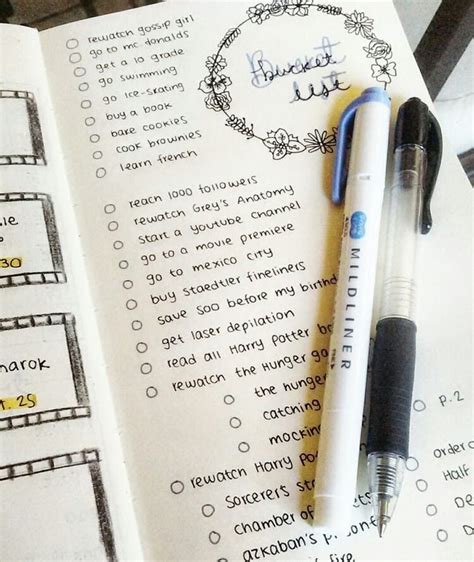 Bucket
list
rewatch gossip girl
go to mc donalds
get a 10 grade
go swimming
go ice-skating
buy a book
bake cookies
cook brownies
learn french
reach 1000 followers
rewatch Grey's Anatomy
start a youtube channel
go to a movie premiere
go to mexico city
buy staedtler fineliners
save 500 before my birthd
get laser depilation
read all Harry Potter bo
rewatch the Hunger ga
the hunge
catching
mockin
rewatch Harry Po
sorcerer's st
chamber of ets
azkaban's p. onf
fire
p.2
order o
Half
MILDLINER
30
narok
t. 25